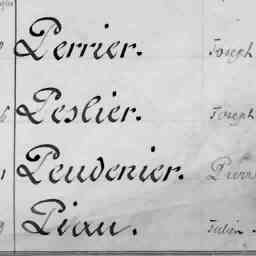 Perrier. Joseph
Peslier. Joseph
Peudenier. Pierre
Piau. Julien